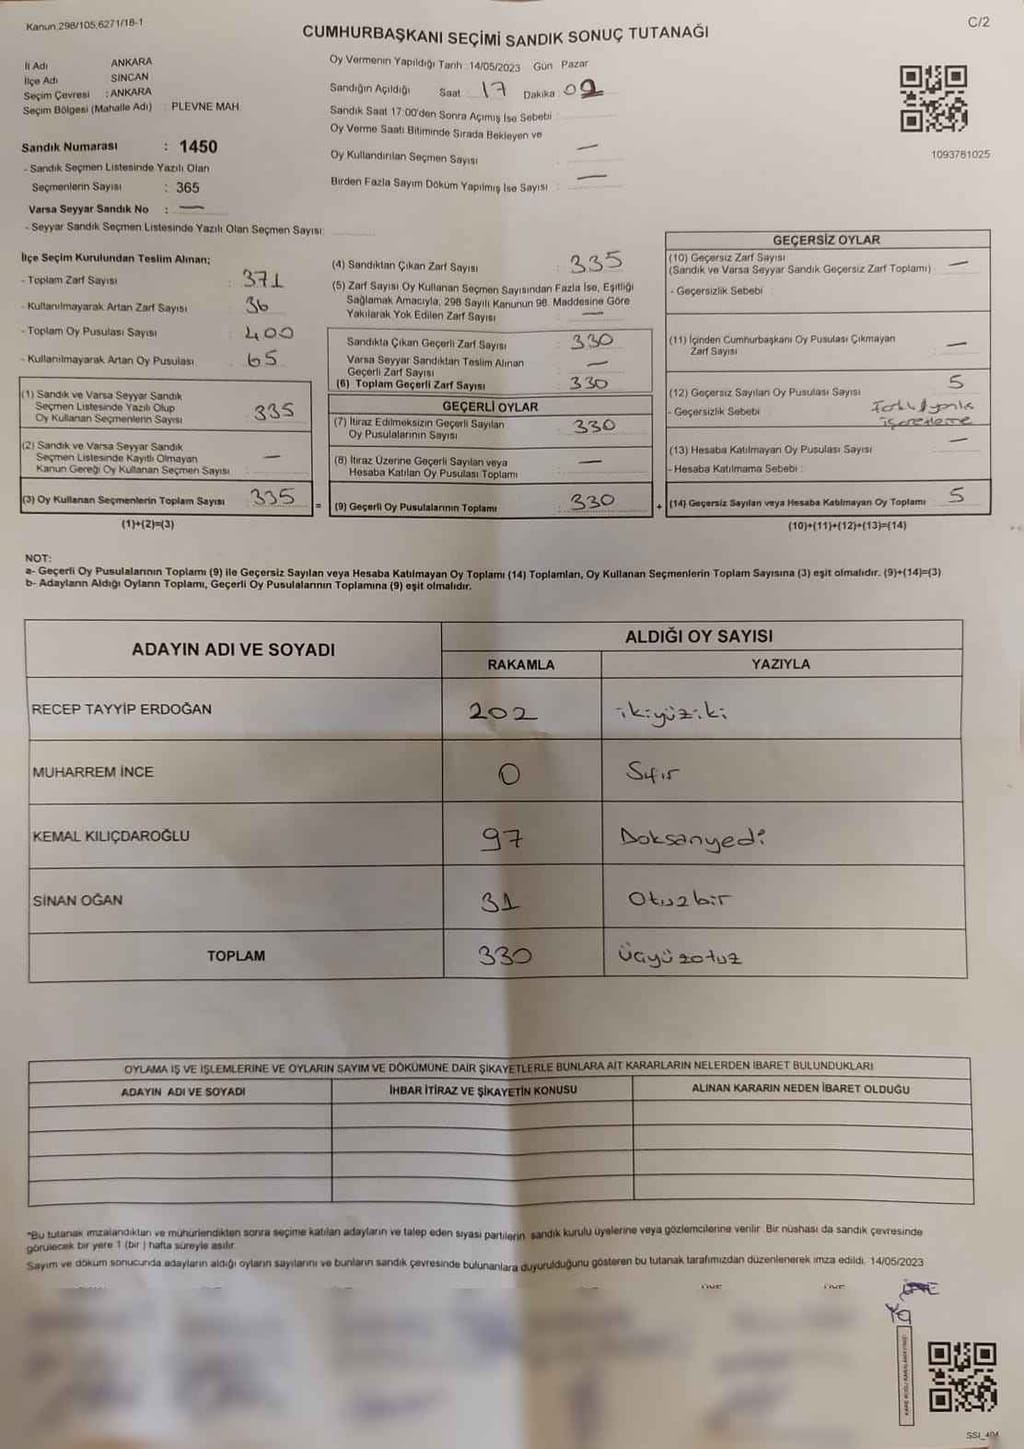 Kanun.298/105,6271/18-1
C/2
CUMHURBAŞKANI SEÇİMİ SANDIK SONUÇ TUTANAĞI
İl Adı ANKARA
İlçe Adı SİNCAN
Seçim Çevresi : ANKARA
Seçim Bölgesi (Mahalle Adı) : PLEVNE MAH.
Sandık Numarası : 1450
- Sandık Seçmen Listesinde Yazılı Olan
Seçmenlerin Sayısı : 365
Varsa Seyyar Sandık No : —
- Seyyar Sandık Seçmen Listesinde Yazılı Olan Seçmen Sayısı:
Oy Vermenin Yapıldığı Tarih :14/05/2023 Gün Pazar
Sandığın Açıldığı Saat 17 Dakika 02
Sandık Saat 17:00'den Sonra Açımış İse Sebebi
Oy Verme Saati Bitiminde Sırada Bekleyen ve
Oy Kullandırılan Seçmen Sayısı —
Birden Fazla Sayım Döküm Yapılmış İse Sayısı : —
1093781025
İlçe Seçim Kurulundan Teslim Alınan;
- Toplam Zarf Sayısı : 371
- Kullanılmayarak Artan Zarf Sayısı : 36
- Toplam Oy Pusulası Sayısı : 400
- Kullanılmayarak Artan Oy Pusulası : 65
(1) Sandık ve Varsa Seyyar Sandık
Seçmen Listesinde Yazılı Olup
Oy Kullanan Seçmenlerin Sayısı 335
(2) Sandık ve Varsa Seyyar Sandık
Seçmen Listesinde Kayıtlı Olmayan
Kanun Gereği Oy Kullanan Seçmen Sayısı —
(3) Oy Kullanan Seçmenlerin Toplam Sayısı 335
(1)+(2)=(3)
(4) Sandıktan Çıkan Zarf Sayısı : 335
(5) Zarf Sayısı Oy Kullanan Seçmen Sayısından Fazla İse, Eşitliği
Sağlamak Amacıyla, 298 Sayılı Kanunun 98. Maddesine Göre
Yakılarak Yok Edilen Zarf Sayısı —
Sandıkta Çıkan Geçerli Zarf Sayısı : 330
Varsa Seyyar Sandıktan Teslim Alınan
Geçerli Zarf Sayısı —
(6) Toplam Geçerli Zarf Sayısı 330
GEÇERLİ OYLAR
(7) İtiraz Edilmeksizin Geçerli Sayılan
Oy Pusulalarının Sayısı 330
(8) İtiraz Üzerine Geçerli Sayılan veya
Hesaba Katılan Oy Pusulası Toplamı —
= (9) Geçerli Oy Pusulalarının Toplamı 330 +
GEÇERSİZ OYLAR
(10) Geçersiz Zarf Sayısı
(Sandık ve Varsa Seyyar Sandık Geçersiz Zarf Toplamı) —
- Geçersizlik Sebebi :
(11) İçinden Cumhurbaşkanı Oy Pusulası Çıkmayan
Zarf Sayısı —
(12) Geçersiz Sayılan Oy Pusulası Sayısı 5
- Geçersizlik Sebebi :
işaretleme
(13) Hesaba Katılmayan Oy Pusulası Sayısı —
- Hesaba Katılmama Sebebi :
(14) Geçersiz Sayılan veya Hesaba Katılmayan Oy Toplamı 5
(10)+(11)+(12)+(13)=(14)
NOT:
a- Geçerli Oy Pusulalarının Toplamı (9) ile Geçersiz Sayılan veya Hesaba Katılmayan Oy Toplamı (14) Toplamları, Oy Kullanan Seçmenlerin Toplam Sayısına (3) eşit olmalıdır. (9)+(14)=(3)
b- Adayların Aldığı Oyların Toplamı, Geçerli Oy Pusulalarının Toplamına (9) eşit olmalıdır.
ADAYIN ADI VE SOYADI
ALDIĞI OY SAYISI
RAKAMLA YAZIYLA
RECEP TAYYİP ERDOĞAN 202 ikiyüziki
MUHARREM İNCE 0 Sıfır
KEMAL KILIÇDAROĞLU 97 Doksanyedi
SİNAN OĞAN 31 Otuzbir
TOPLAM 330 Üçyüzotuz
OYLAMA İŞ VE İŞLEMLERİNE VE OYLARIN SAYIM VE DÖKÜMÜNE DAİR ŞİKAYETLERLE BUNLARA AİT KARARLARIN NELERDEN İBARET BULUNDUKLARI
ADAYIN ADI VE SOYADI İHBAR İTİRAZ VE ŞİKAYETİN KONUSU ALINAN KARARIN NEDEN İBARET OLDUĞU
*Bu tutanak imzalandıktan ve mühürlendikten sonra seçime katılan adayların ve talep eden siyasi partilerin sandık kurulu üyelerine veya gözlemcilerine verilir. Bir nüshası da sandık çevresinde
görülecek bir yere 1 (bir ) hafta süreyle asılır.
Sayım ve döküm sonucunda adayların aldığı oyların sayılarını ve bunların sandık çevresinde bulunanlara duyurulduğunu gösteren bu tutanak tarafımızdan düzenlenerek imza edildi. 14/05/2023